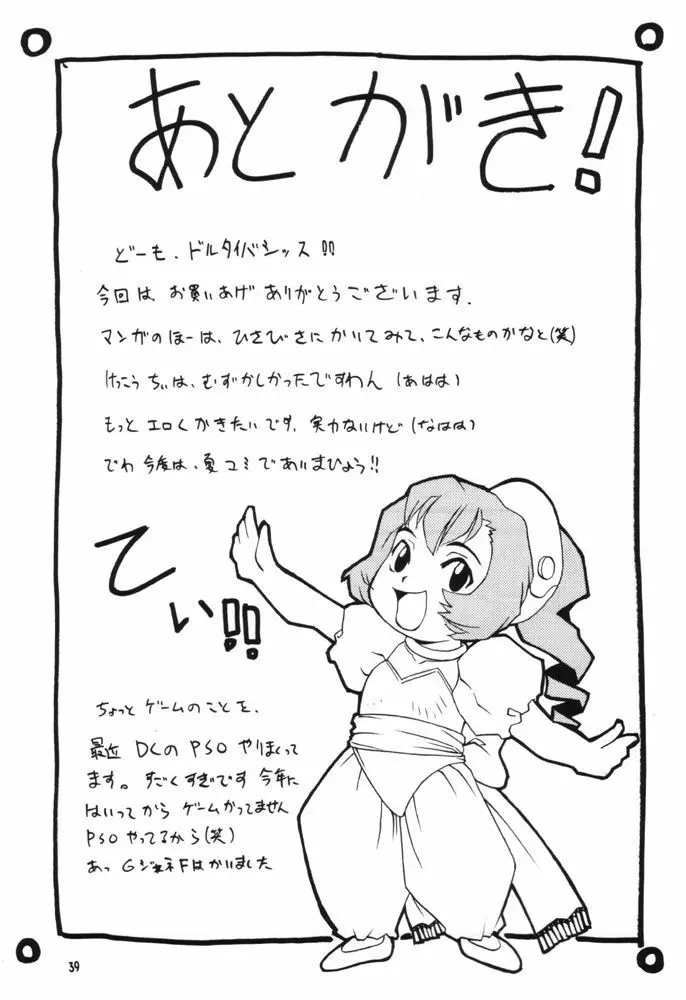 あとがき!
どーも、ドルタイバシッス!!
今回は、お買いあげ ありがとうございます.
マンガのほーは、ひさびさにかいてみて、こんなものかなと(笑)
けっこう ちぃは、むずかしかったですわん (あはは)
もっと エロくかきたいです、実力ないけど(なはは)
でわ 今度は、夏コミであいまひょう!!
てぃ!!
ちょっと ゲームのことを、
最近 DCの PSO やりまくって
ます。すごくすぎです 今年に
はいってから ゲームかってません
PSO やってるから(笑)
あっ GジェネFはかいました
39